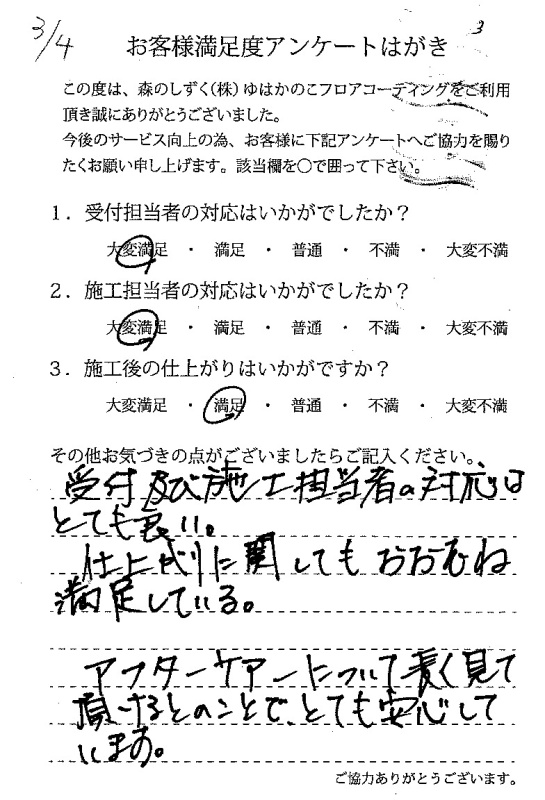 3/4
3
お客様満足度アンケートはがき
この度は、森のしずく(株)ゆはかのこフロアコーティングをご利用
頂き誠にありがとうございました。
今後のサービス向上の為、お客様に下記アンケートへご協力を賜り
たくお願い申し上げます。該当欄を〇で囲って下さい。
1．受付担当者の対応はいかがでしたか？
大変満足 ・ 満足 ・ 普通 ・ 不満 ・ 大変不満
2．施工担当者の対応はいかがでしたか？
大変満足 ・ 満足 ・ 普通 ・ 不満 ・ 大変不満
3．施工後の仕上がりはいかがですか？
大変満足 ・ 満足 ・ 普通 ・ 不満 ・ 大変不満
その他お気づきの点がございましたらご記入ください。
受付及び施工担当者の対応は
とても良い。
仕上がりに関してもおおむね
満足している。
アフターケアーについて長く見て
頂けるとのことで、とても安心して
います。
ご協力ありがとうございます。